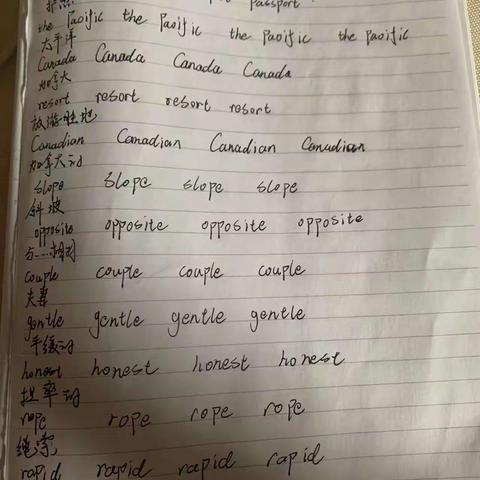 护照 passport
the Pacific the Pacific the Pacific the Pacific
太平洋
Canada Canada Canada Canada
加拿大
resort resort resort resort
旅游胜地
Canadian Canadian Canadian Canadian
加拿大的
slope slope slope slope
斜坡
opposite opposite opposite opposite
与……相对
couple couple couple couple
夫妻
gentle gentle gentle gentle
平缓的
honest honest honest honest
坦率的
rope rope rope rope
绳索
rapid rapid rapid rapid